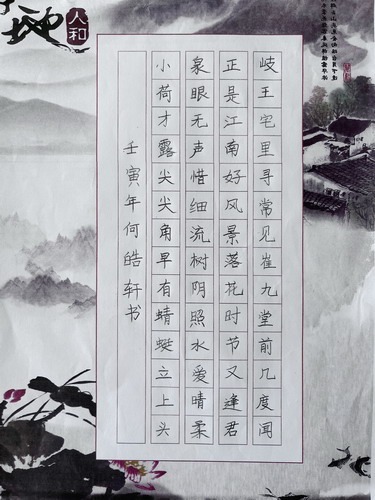 岐王宅里寻常见崔九堂前几度闻
正是江南好风景落花时节又逢君
泉眼无声惜细流树阴照水爱晴柔
小荷才露尖尖角早有蜻蜓立上头
壬寅年何皓轩书
地
人和